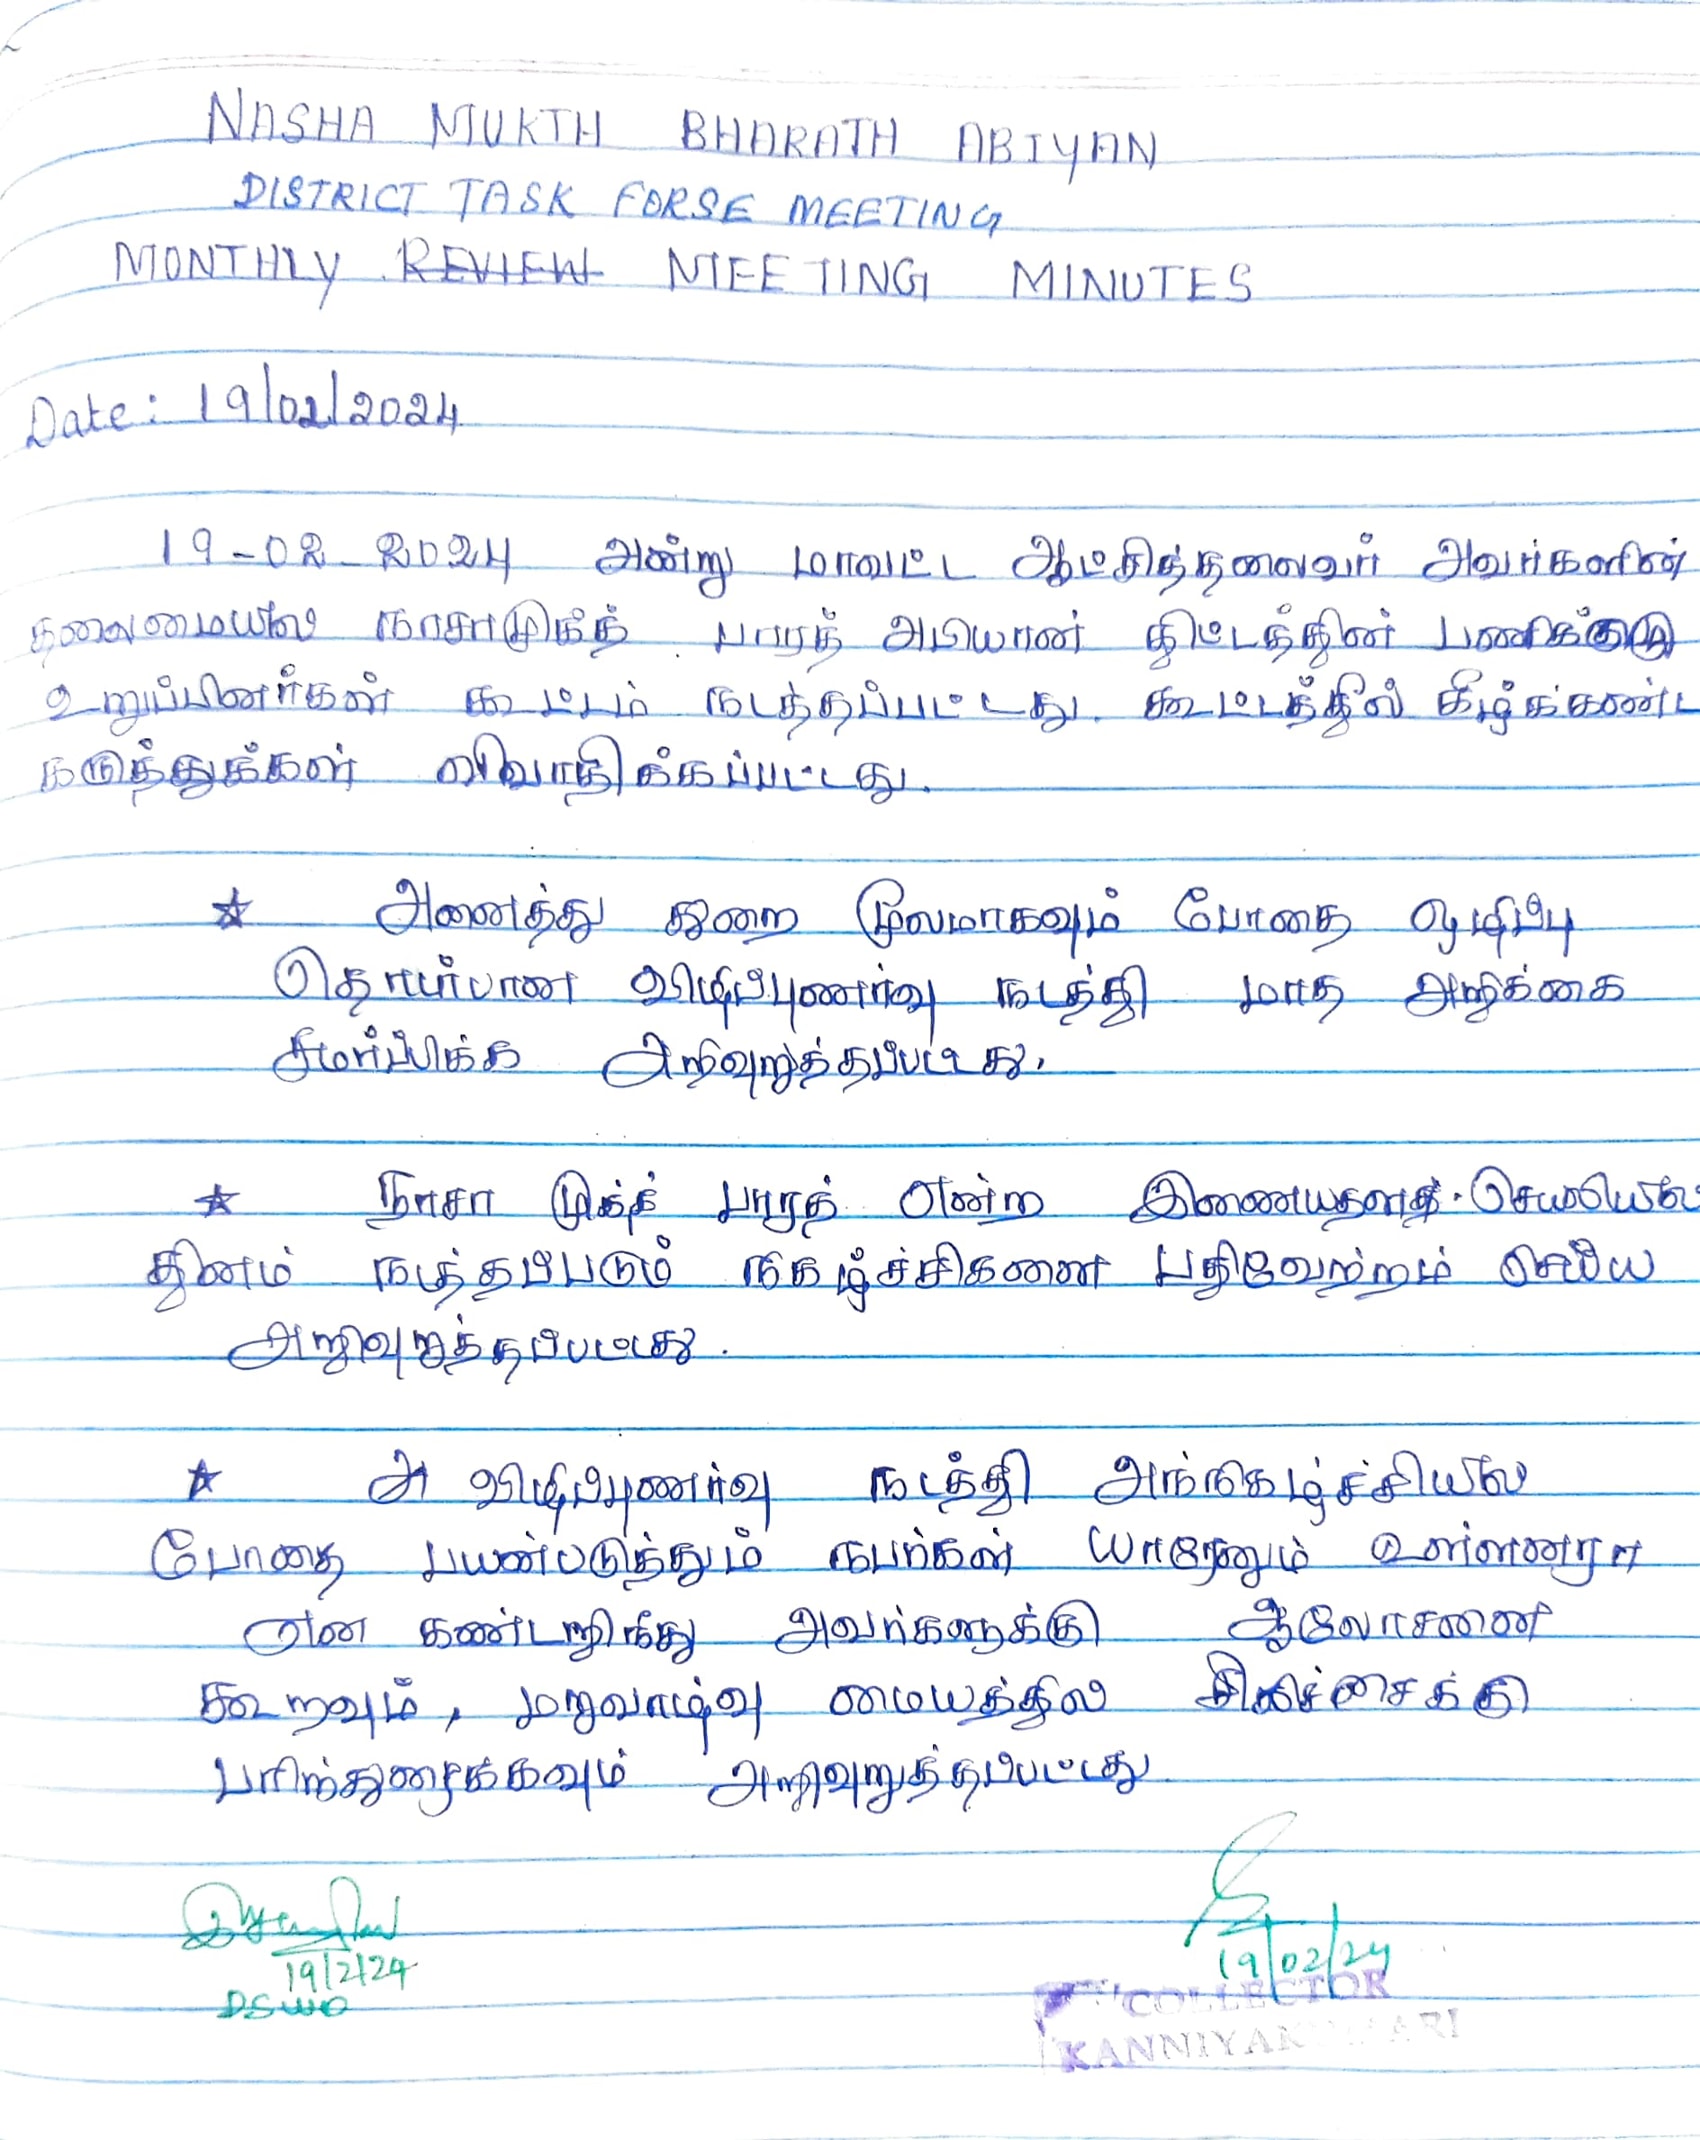 NASHA MUKTH BHARATH ABIYAN
DISTRICT TASK FORSE MEETING
MONTHLY REVIEW MEETING MINUTES
Date: 19/02/2024
19-02-2024 அன்று மாவட்ட ஆட்சித்தலைவர் அவர்களின்
தலைமையில் நாசாமுக்த் பாரத் அபியான் திட்டத்தின் பணிக்குழு
உறுப்பினர்கள் கூட்டம் நடத்தப்பட்டது. கூட்டத்தில் கீழ்க்கண்ட
கருத்துக்கள் விவாதிக்கப்பட்டது.
★ அனைத்து துறை மூலமாகவும் போதை ஒழிப்பு
தொடர்பான விழிப்புணர்வு நடத்தி மாத அறிக்கை
சமர்ப்பிக்க அறிவுறுத்தப்பட்டது.
★ நாசா முக்த் பாரத் என்ற இணையதளத் செயலியில்
தினம் நடத்தப்படும் நிகழ்ச்சிகளை பதிவேற்றம் செய்ய
அறிவுறுத்தப்பட்டது.
★ அ விழிப்புணர்வு நடத்தி அந்நிகழ்ச்சியில்
போதை பயன்படுத்தும் நபர்கள் யாரேனும் உள்ளனரா
என கண்டறிந்து அவர்களுக்கு ஆலோசனை
கூறவும், மறுவாழ்வு மையத்தில் சிகிச்சைக்கு
பரிந்துரைக்கவும் அறிவுறுத்தப்பட்டது
19/2/24
DSWO
19/02/24
COLLECTOR
KANNIYAKUMARI